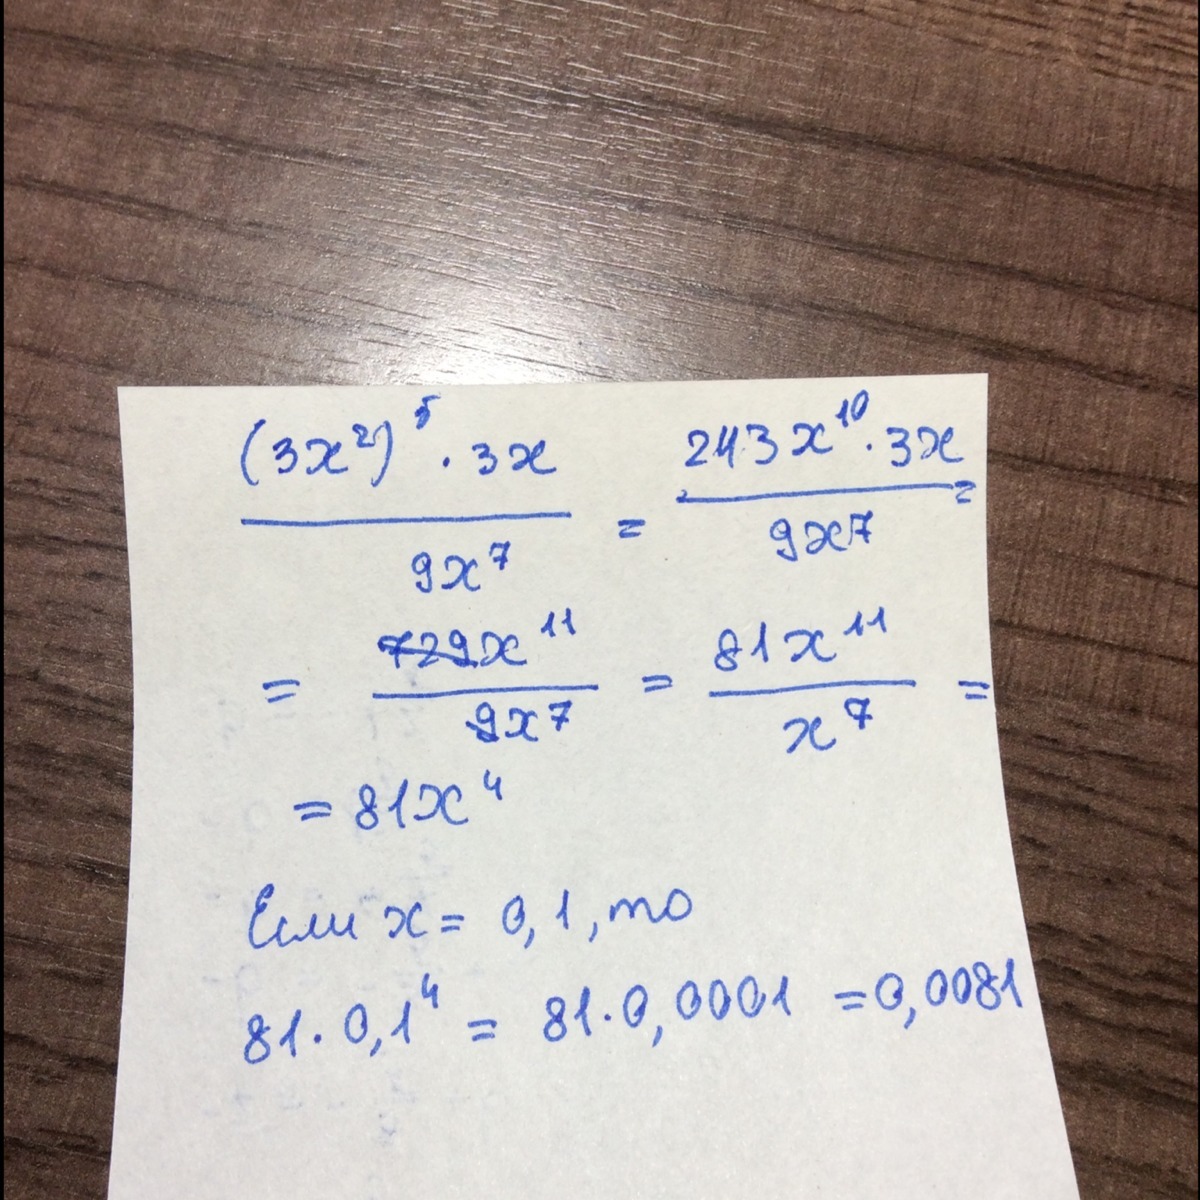 (3x²)⁵ · 3x / 9x⁷ = 243x¹⁰ · 3x / 9x⁷ =
= 729x¹¹ / 9x⁷ = 81x¹¹ / x⁷ =
= 81x⁴
Если x = 0,1, то
81 · 0,1⁴ = 81 · 0,0001 = 0,0081